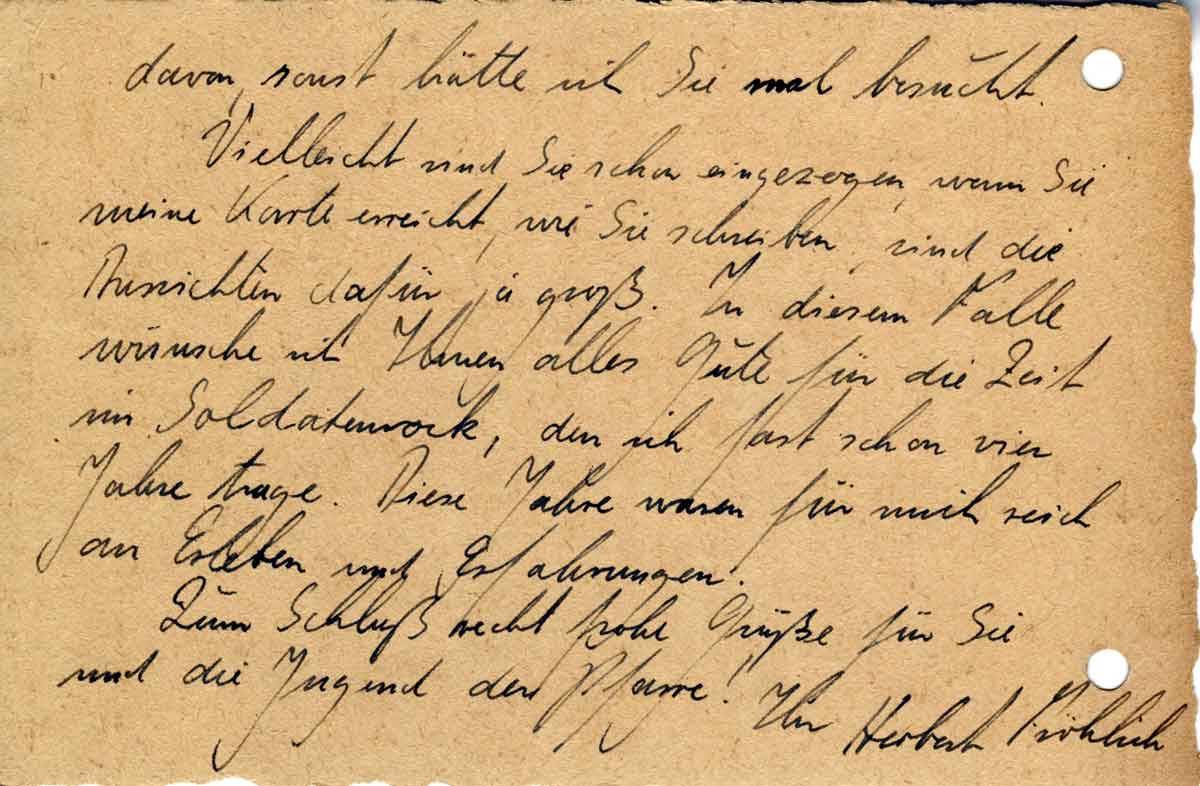 davon, sonst hätte ich Sie mal besucht.
Vielleicht sind Sie schon eingezogen, wenn Sie
meine Karte erreicht, wie Sie schreiben, sind die
Aussichten dafür ja groß. In diesem Falle
wünsche ich Ihnen alles Gute für die Zeit
im Soldatenrock, den ich fast schon vier
Jahre trage. Diese Jahre waren für mich reich
an Erleben und Erfahrungen.
Zum Schluß recht frohe Grüße für Sie
und die Jugend der Pfarre! Ihr Herbert Fröhlich